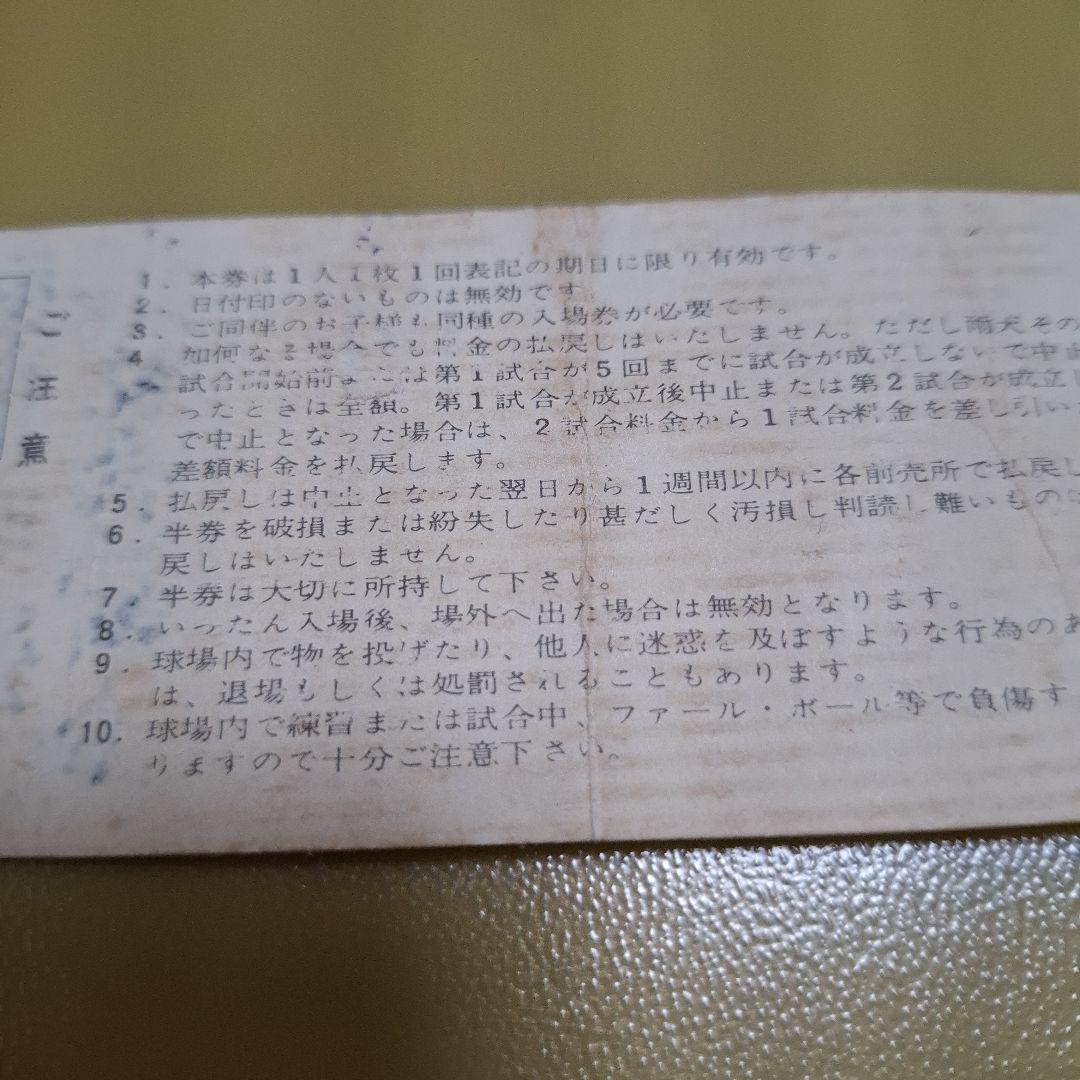 ご注意
1. 本券は1人1枚1回表記の期日に限り有効です。
2. 日付印のないものは無効です
3. ご同伴のお子様も同種の入場券が必要です。
4 如何なる場合でも料金の払戻しはいたしません。ただし雨天その
試合開始前または第1試合が5回までに試合が成立しないで中止
ったときは全額。第1試合が成立後中止または第2試合が成立し
で中止となった場合は、2試合料金から1試合料金を差し引い
差額料金を払戻します。
5. 払戻しは中止となった翌日から1週間以内に各前売所で払戻し
6. 半券を破損または紛失したり甚だしく汚損し判読し難いものは
戻しはいたしません。
7. 半券は大切に所持して下さい。
8. いったん入場後、場外へ出た場合は無効となります。
9. 球場内で物を投げたり、他人に迷惑を及ぼすような行為のあ
は、退場もしくは処罰されることもあります。
10. 球場内で練習または試合中、ファール・ボール等で負傷す
りますので十分ご注意下さい。